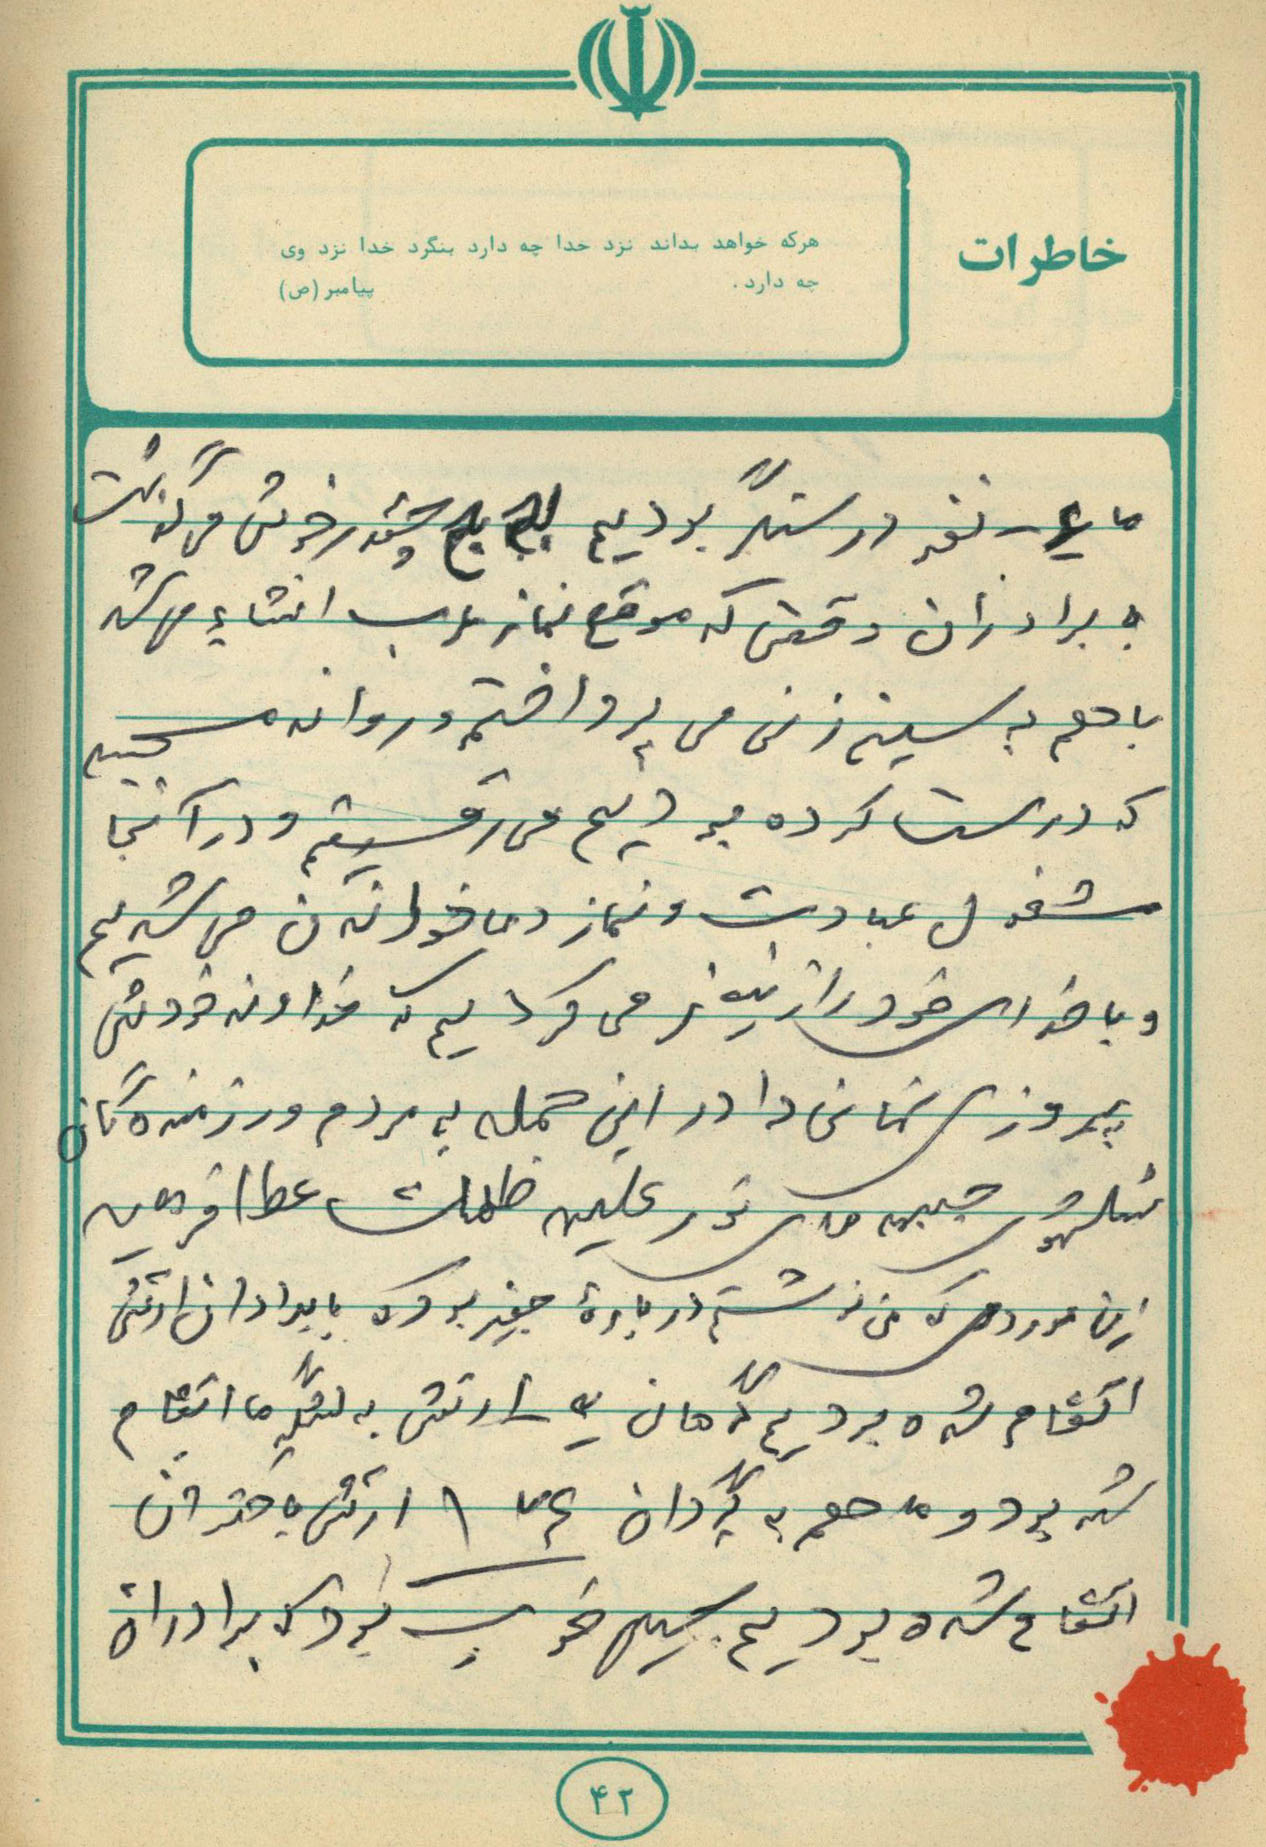 خاطرات
هرکه خواهد بداند نزد خدا چه دارد بنگرد خدا نزد وی
چه دارد. پیامبر (ص)
ما نفر در سنگر بودیم چقدر خوش می گذشت
به برادران وقتی که موقع نماز می شد
با هم به سینه زنی می پرداختیم و روانه
که درست کرده بودیم می رفتیم و در آنجا
مشغول عبادت و نماز و دعا خواندن می شدیم
و با خدای خود راز نیاز می کردیم که خداوند خودش
پیروزی نهائی را در این حمله به مردم و رزمندگان
جبهه های نور علیه ظلمات عطا فرماید
این مورد که می نوشتم درباره بود که با برادران ارتش
ادغام شده بودیم گردان ارتش به لشگر ما ادغام
شده بود و ما هم به گردان ارتش باختران
ادغام شده بودیم بسیار خوب بود که برادران
۴۲